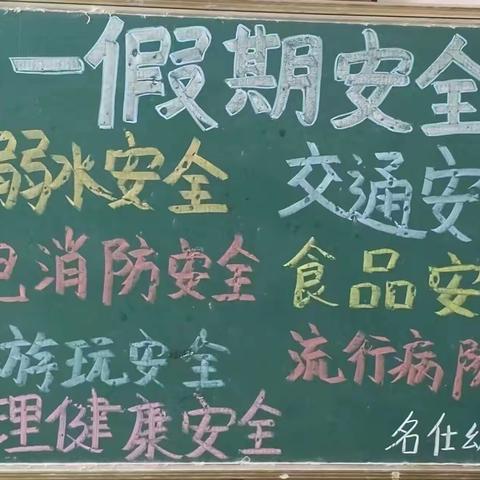 一假期安全
溺水安全 交通安
电消防安全 食品安
游玩安全 流行病防
理健康安全
名仕幼